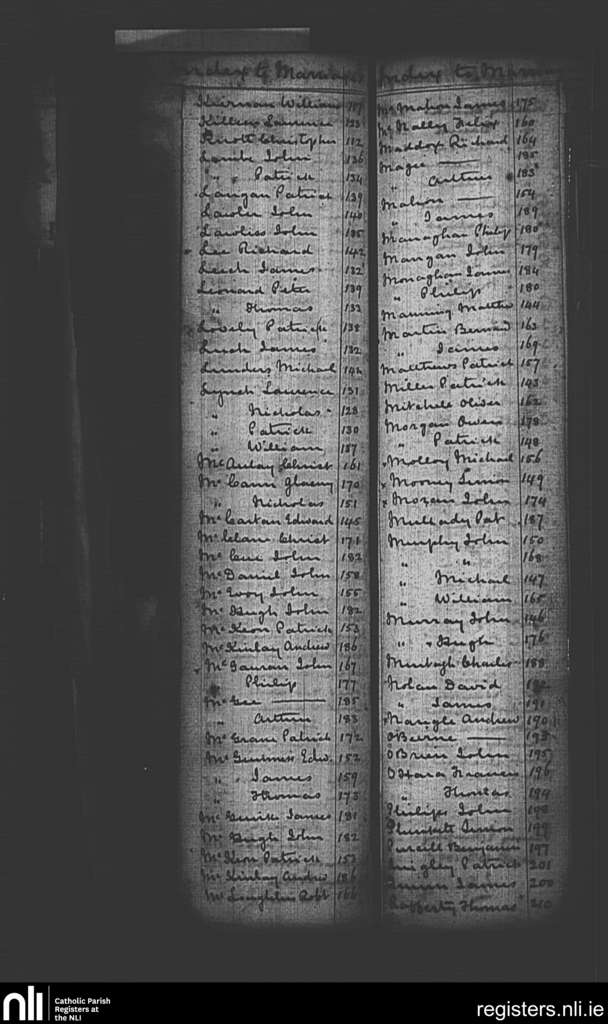 Index to Marriages
Kiernan William 117
Killen Laurence 123
Knott Christopher 112
Lamb John 136
" Patrick 134
Langan Patrick 139
Lawler John 140
Lawliss John 135
Lee Richard 142
Leech James 132
Leonard Peter 139
" Thomas 133
Lovely Patrick 138
Luch James 132
Lunders Michael 142
Lynch Laurence 131
" Nicholas 128
" Patrick 130
" William 137
McAulay Christ 161
McCann 170
" Nicholas 151
McCartan Edward 145
McClane Christ 171
McCue John 182
McDaniel John 158
McEvoy John 155
McHugh John 182
McKeon Patrick 153
McKinlay Andrew 186
McGauran John 167
Philip 177
McGee — 185
" Arthur 183
McGrane Patrick 172
McGuinness Edw. 152
" James 159
" Thomas 173
McGuirk James 181
McHugh John 182
McKeon Patrick 153
McKinlay Andrew 186
McLoughlin Robt 166
Index to Marria
McMahon James 175
McNally Felix 160
Maddox Richard 164
Magee — 185
" Arthur 183
Mahon — 154
" James 189
Managhan Philip 180
Mangan John 179
Monaghan James 184
" Philip 180
Manning Matthew 144
Martin Bernard 163
" James 169
Matthews Patrick 157
Miller Patrick 143
Mitchell Oliver 162
Morgan Owen 178
" Patrick 148
Molloy Michael 156
x Mooney Simon 149
x Mozan John 174
Mullady Pat 187
Murphy John 150
" " 168
" Michael 147
" William 165
Murray John 146
" Hugh 176
Murtagh Charles 188
Nolan David
" James 191
Nangle Andrew 190
O'Beirne — 193
O'Brien John 195
O'Hara Francis 196
" Thomas 194
Philips John 198
Plunkett Simon 199
Purcell Benjamin 197
Quigley Patrick 201
Quinn James 200
Rafferty Thomas 210
nli
Catholic Parish
Registers at
the NLI
registers.nli.ie